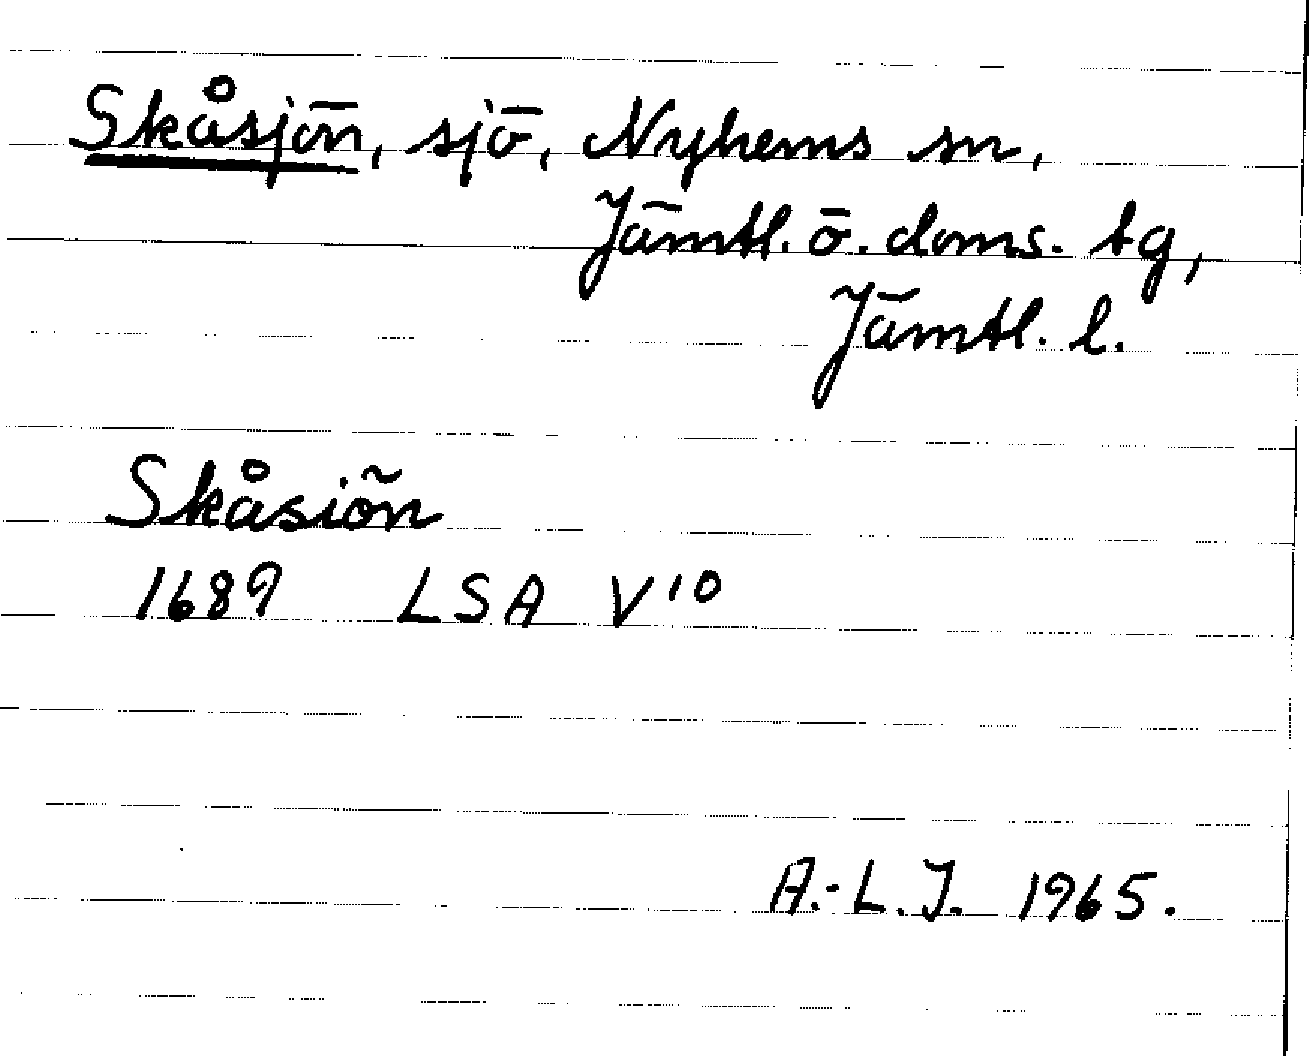 Skåsjön, sjö, Nyhems sn,
Jämtl. ö. doms. tg,
Jämtl. l.
Skåsiön
1689 LSA V10
A.-L.J. 1965.